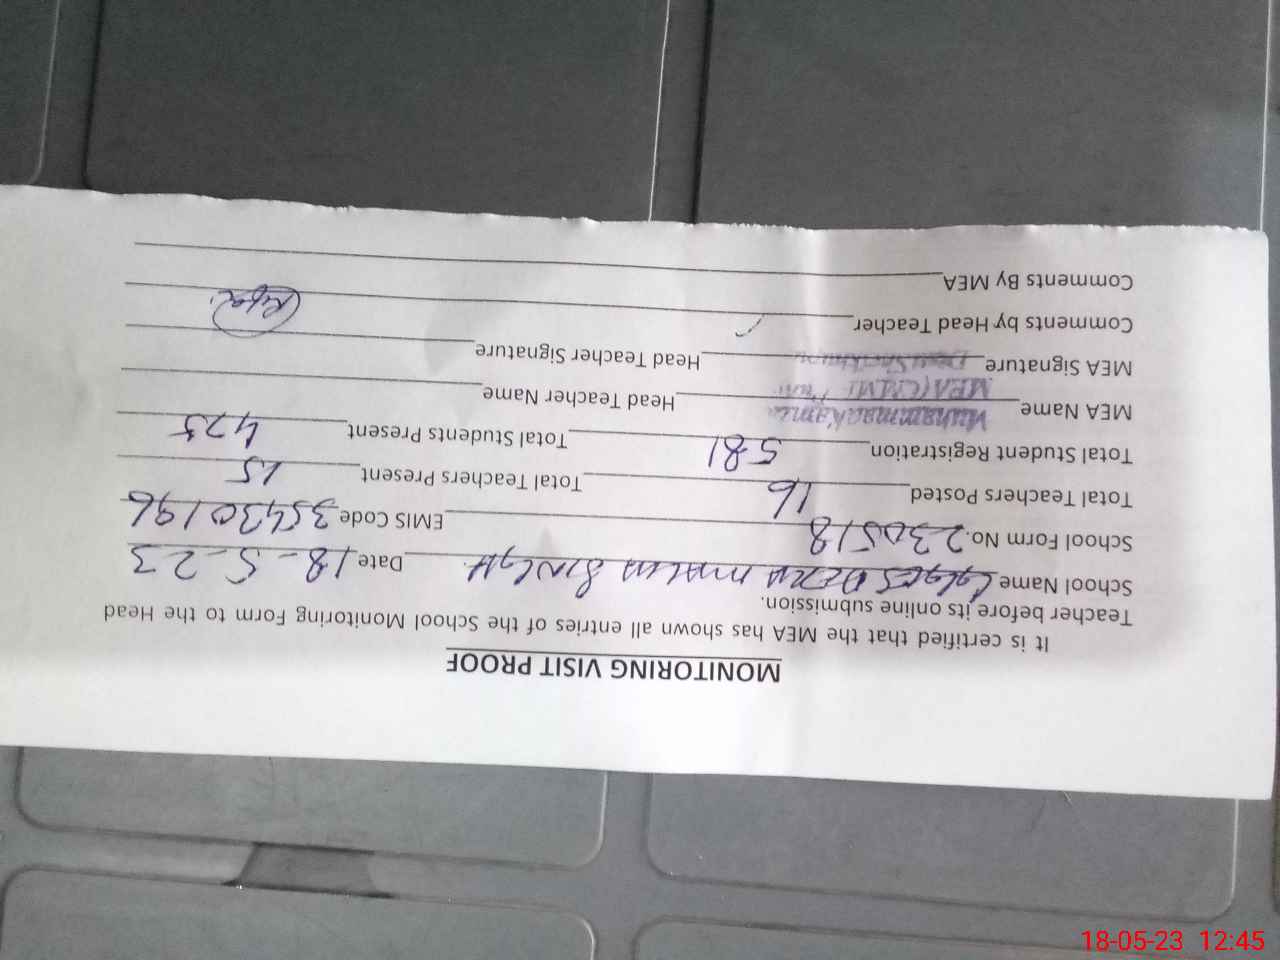 MONITORING VISIT PROOF
It is certified that the MEA has shown all entries of the School Monitoring Form to the Head
Teacher before its online submission.
School Name GGES DERA MALHA SINGH Date 18-5-23
School Form No. 230518 EMIS Code 35430196
Total Teachers Posted 16 Total Teachers Present 15
Total Student Registration 581 Total Students Present 475
MEA Name Muhammad Head Teacher Name
MEA (CMM)
MEA Signature Head Teacher Signature
Comments by Head Teacher
Comments By MEA
18-05-23 12:45